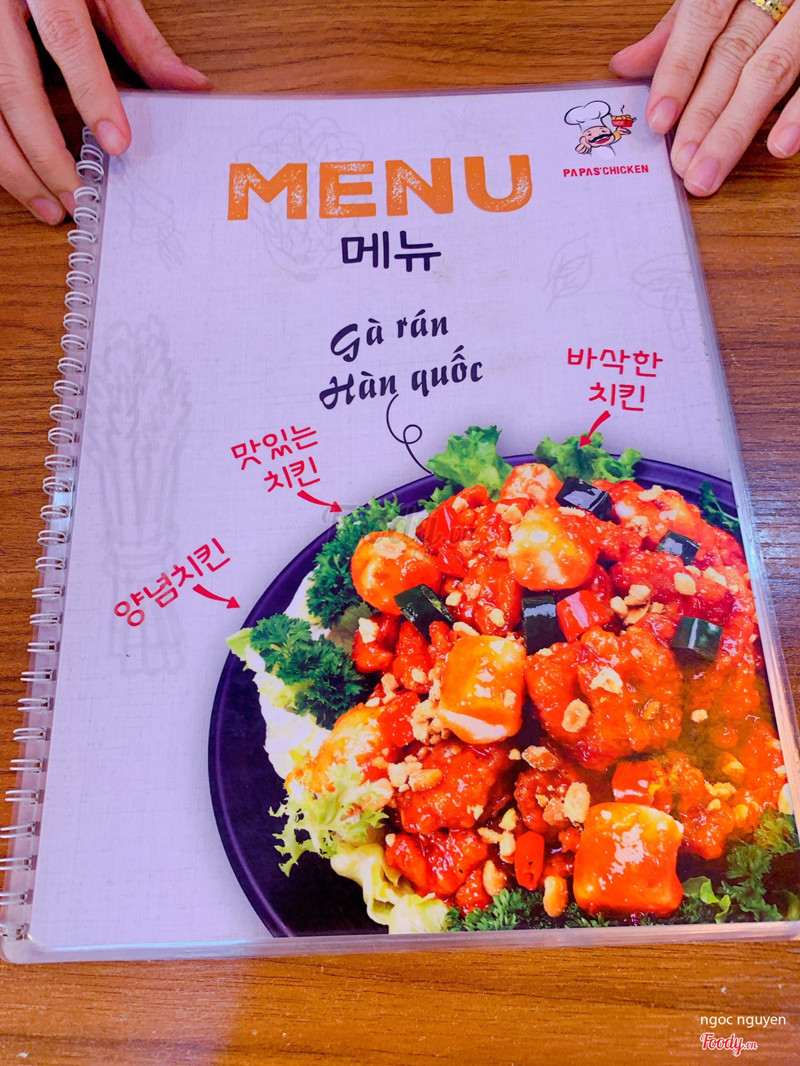 PAPAS'CHICKEN
MENU
메뉴
Gà rán
Hàn quốc
바삭한
치킨
맛있는
치킨
양념치킨
ngoc nguyen
Foody.vn